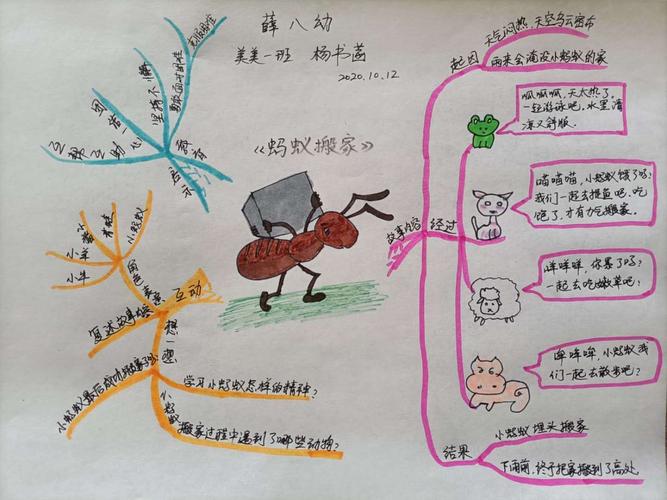 薛八幼
美美一班 杨书菡
2020.10.12
《蚂蚁搬家》
故事内容
起因
天气闷热 天空乌云密布
雨来会淹没小蚂蚁的家
经过
呱呱呱，天太热了，
一起游泳吧，水里清
凉又舒服。
喵喵喵，小蚂蚁饿了吗？
我们一起去捉鱼吧，吃
饱了，才有力气搬家。
咩咩咩，你累了吗？
一起去吃嫩草吧？
哞哞哞，小蚂蚁我
们一起去散步吧？
结果
小蚂蚁埋头搬家
下雨前，终于把家搬到了高处
教育
启示
勇敢面对困难
克服困难
坚持不懈
团结一心
互帮互助
互动
角色表演
小蚂蚁
青蛙
小猫
小羊
小牛
复述故事
想一想
学习小蚂蚁怎样的精神？
小蚂蚁
搬家过程中遇到了哪些动物？
小蚂蚁最后成功搬家了吗